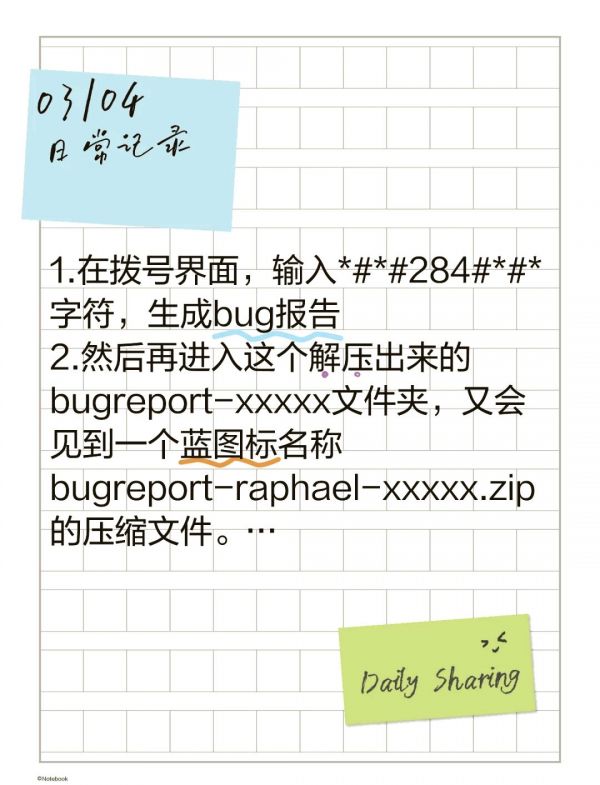 03/04
日常记录
1.在拨号界面，输入*#*#284#*#*
字符，生成bug报告
2.然后再进入这个解压出来的
bugreport-xxxxx文件夹，又会
见到一个蓝图标名称
bugreport-raphael-xxxxx.zip
的压缩文件。…
Daily Sharing
©Notebook